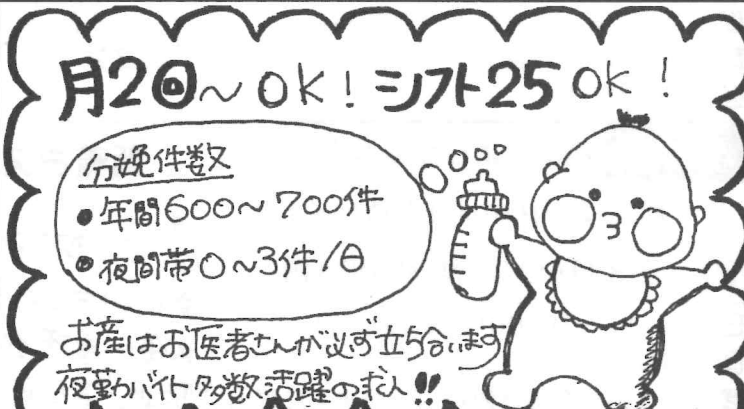 月2回~OK!シフト25OK!
分娩件数
●年間600~700件
●夜間帯0~3件/日
お産はお医者さんが必ず立ち合います
夜勤バイト多数活躍の求人!!